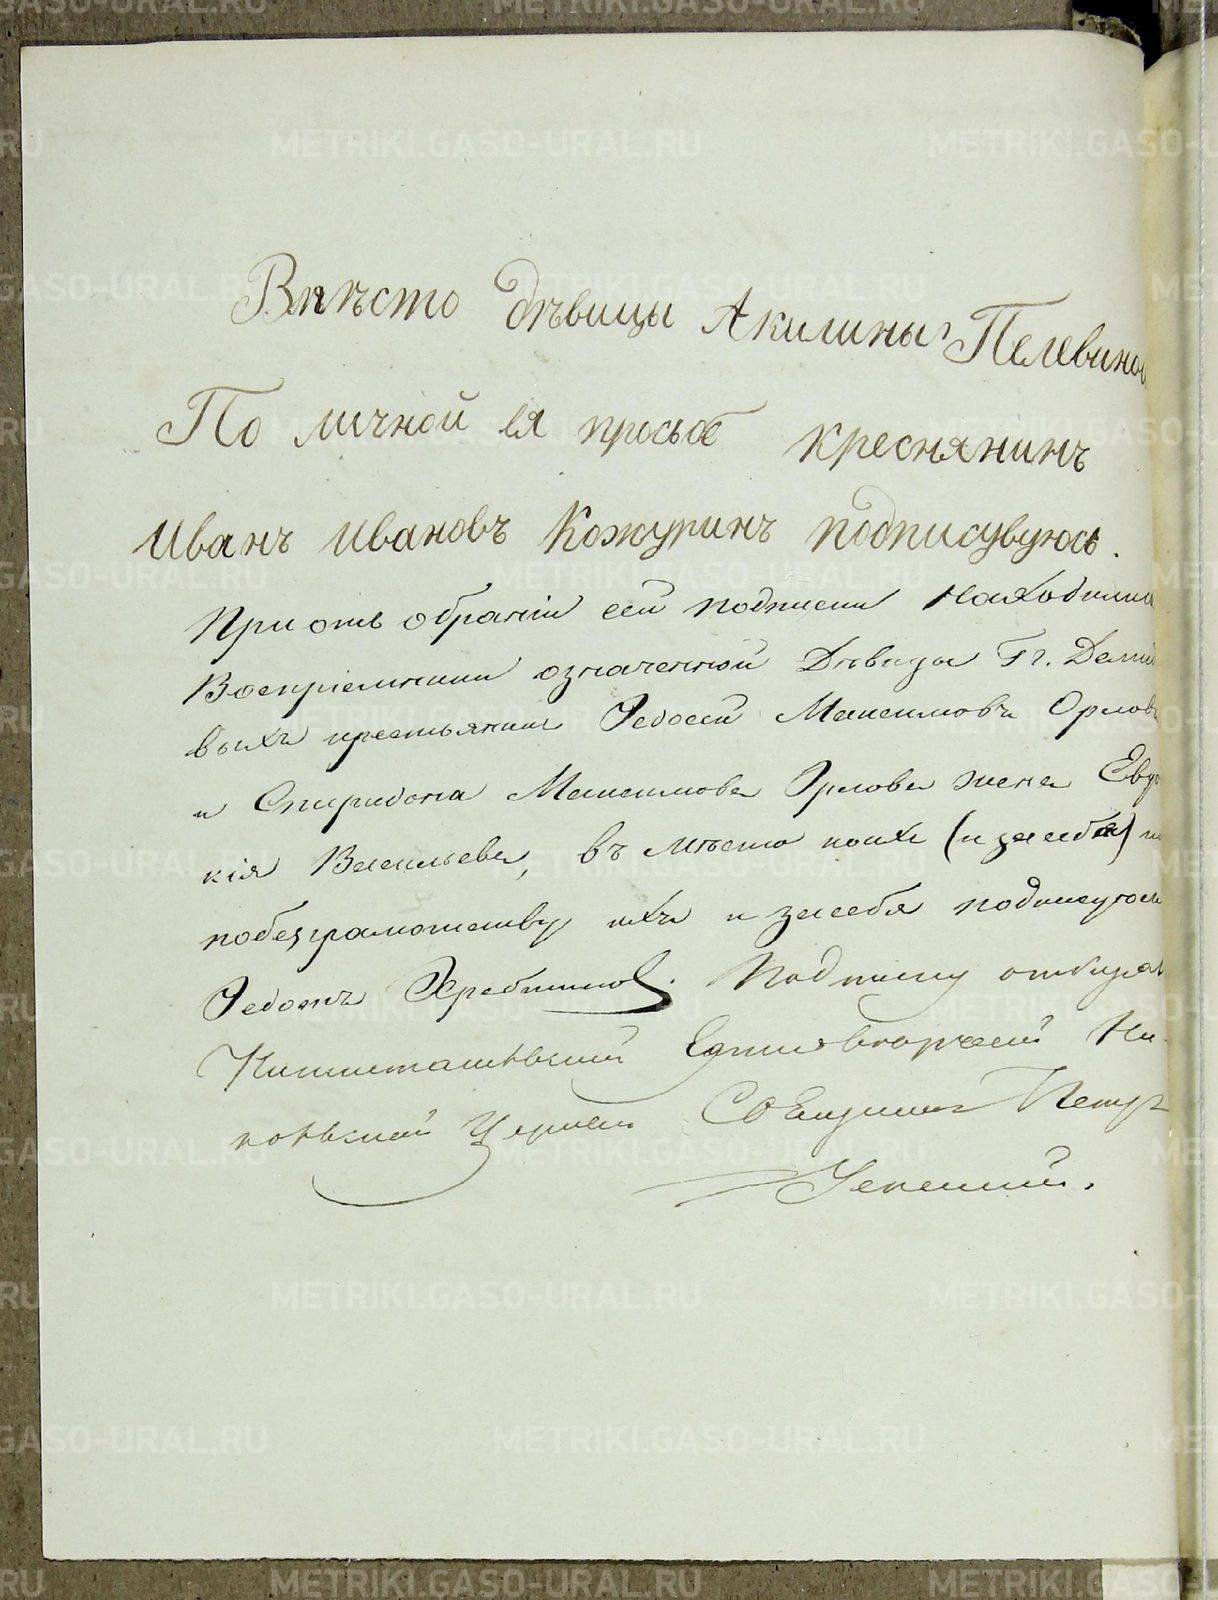 Вмѣсто дѣвицы Акилины Пелевиной
По личной ея просьбе кресиянинъ
Иванъ Ивановъ Кожуринъ подписувуюсь.
При отъ обраніи сей подписки находились
Воспріемники означенной Дѣвицы Гг. Деми
выхъ крестьянинъ Федосей Максимовъ Орловъ
и Спиридона Максимова Орлова жена Евдо
кія Васильева, въ мѣсто коихъ (и засебя) по
побезграмотству ихъ и засебя подписуюсь
Федотъ Жеребтцовъ. Подписку отбирал
Единоверческой Ни-
кольской Церкви Священникъ Петръ
METRIKI.GASO-URAL.RU